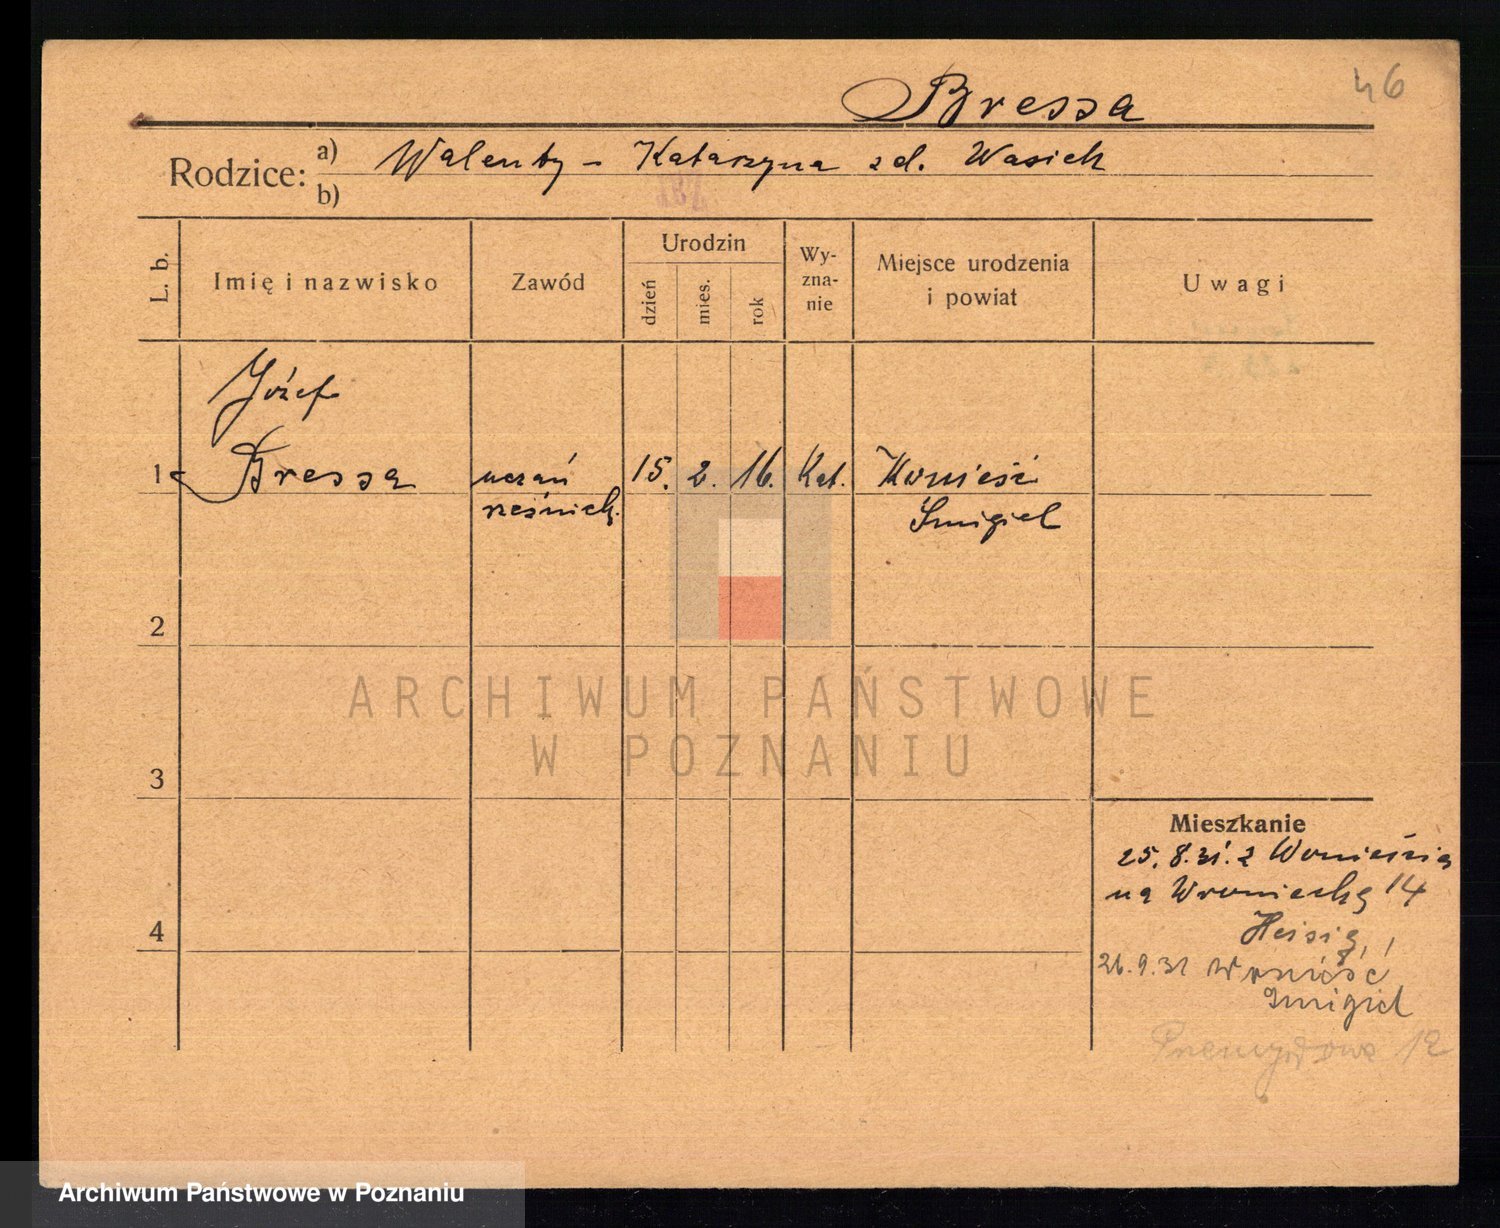 46
Bressa
Rodzice: a) Walenty – Katarzyna z d. Wasiek
b)
L. b.
Imię i nazwisko
Zawód
Urodzin
dzień
mies.
rok
Wy-
zna-
nie
Miejsce urodzenia
i powiat
Uwagi
Józef
1 Bressa
uczeń
rzeźnick.
15. 2. 16. Kat.
Śmigiel
2
3
4
Mieszkanie
25. 8. 31. z Wonieścia
na Wroniecką 14
26.9.31 Wonieść
Śmigiel
12
ARCHIWUM PAŃSTWOWE
W POZNANIU
Archiwum Państwowe w Poznaniu